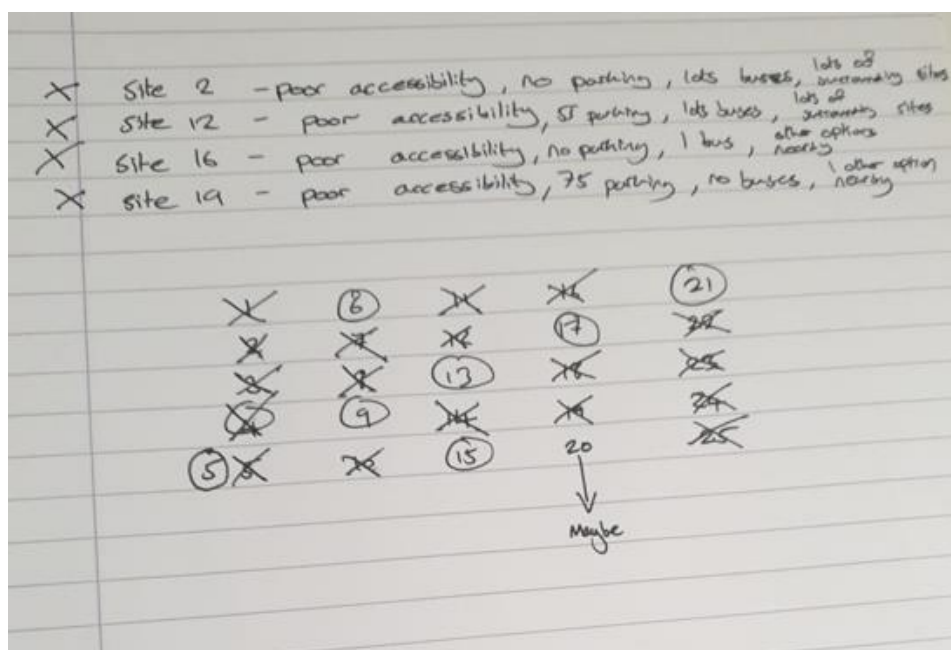 X Site 2 - poor accessibility, no parking, lots buses, lots of surrounding sites
X Site 12 - poor accessibility, 55 parking, lots buses, lots of surrounding sites
X Site 16 - poor accessibility, no parking, 1 bus, other options nearby
X Site 19 - poor accessibility, 75 parking, no buses, 1 other option nearby
1 6 11 16 21
2 7 12 17 22
3 8 13 18 23
4 9 14 19 24
5 5 10 15 20 25
Maybe